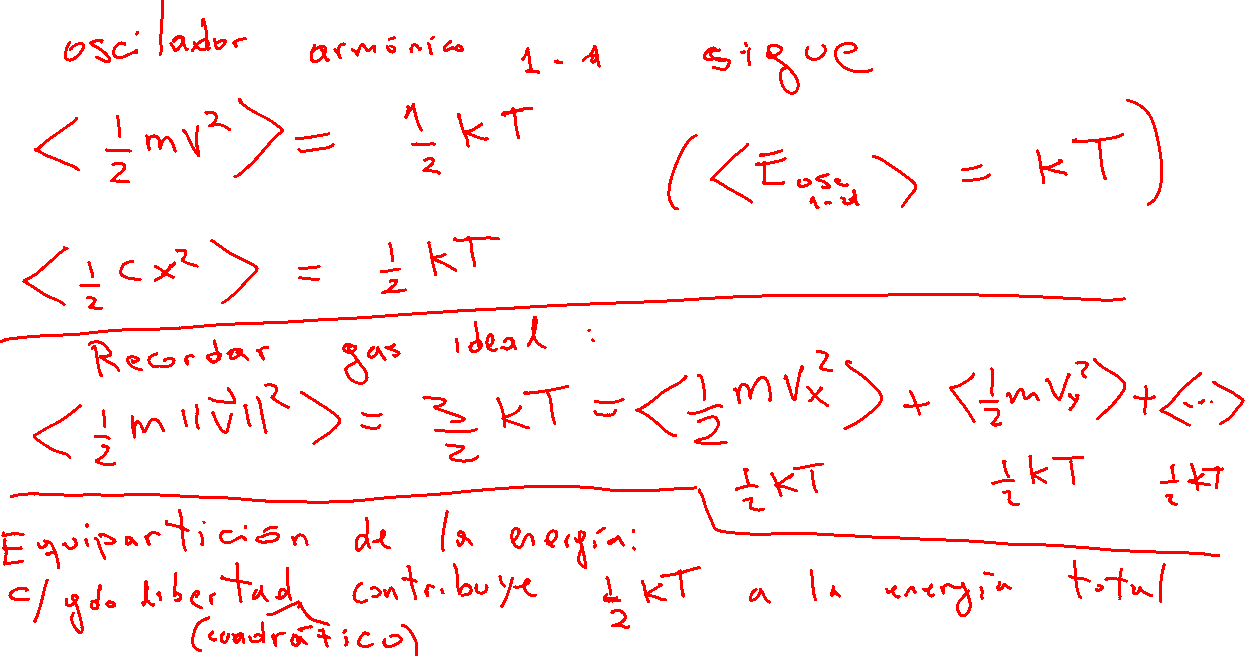 oscilador armónico 1-d sigue
< 1/2 mv² > = 1/2 kT
(< E̅ osc 1-d > = kT)
< 1/2 c x² > = 1/2 kT
Recordar gas ideal:
< 1/2 m ||v⃗||² > = 3/2 kT = < 1/2 m Vx² > + < 1/2 m Vy² > + < ... >
1/2 kT 1/2 kT 1/2 kT
Equipartición de la energía:
c/ gdo libertad contribuye 1/2 kT a la energía total
(cuadrático)